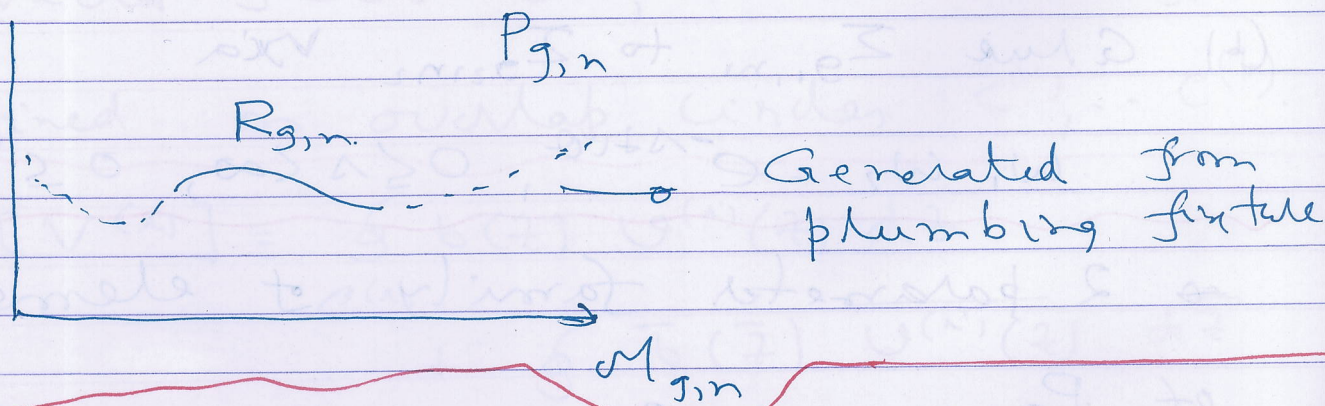 P g,n
R g,n.
Generated from
plumbing fixture
M g,n